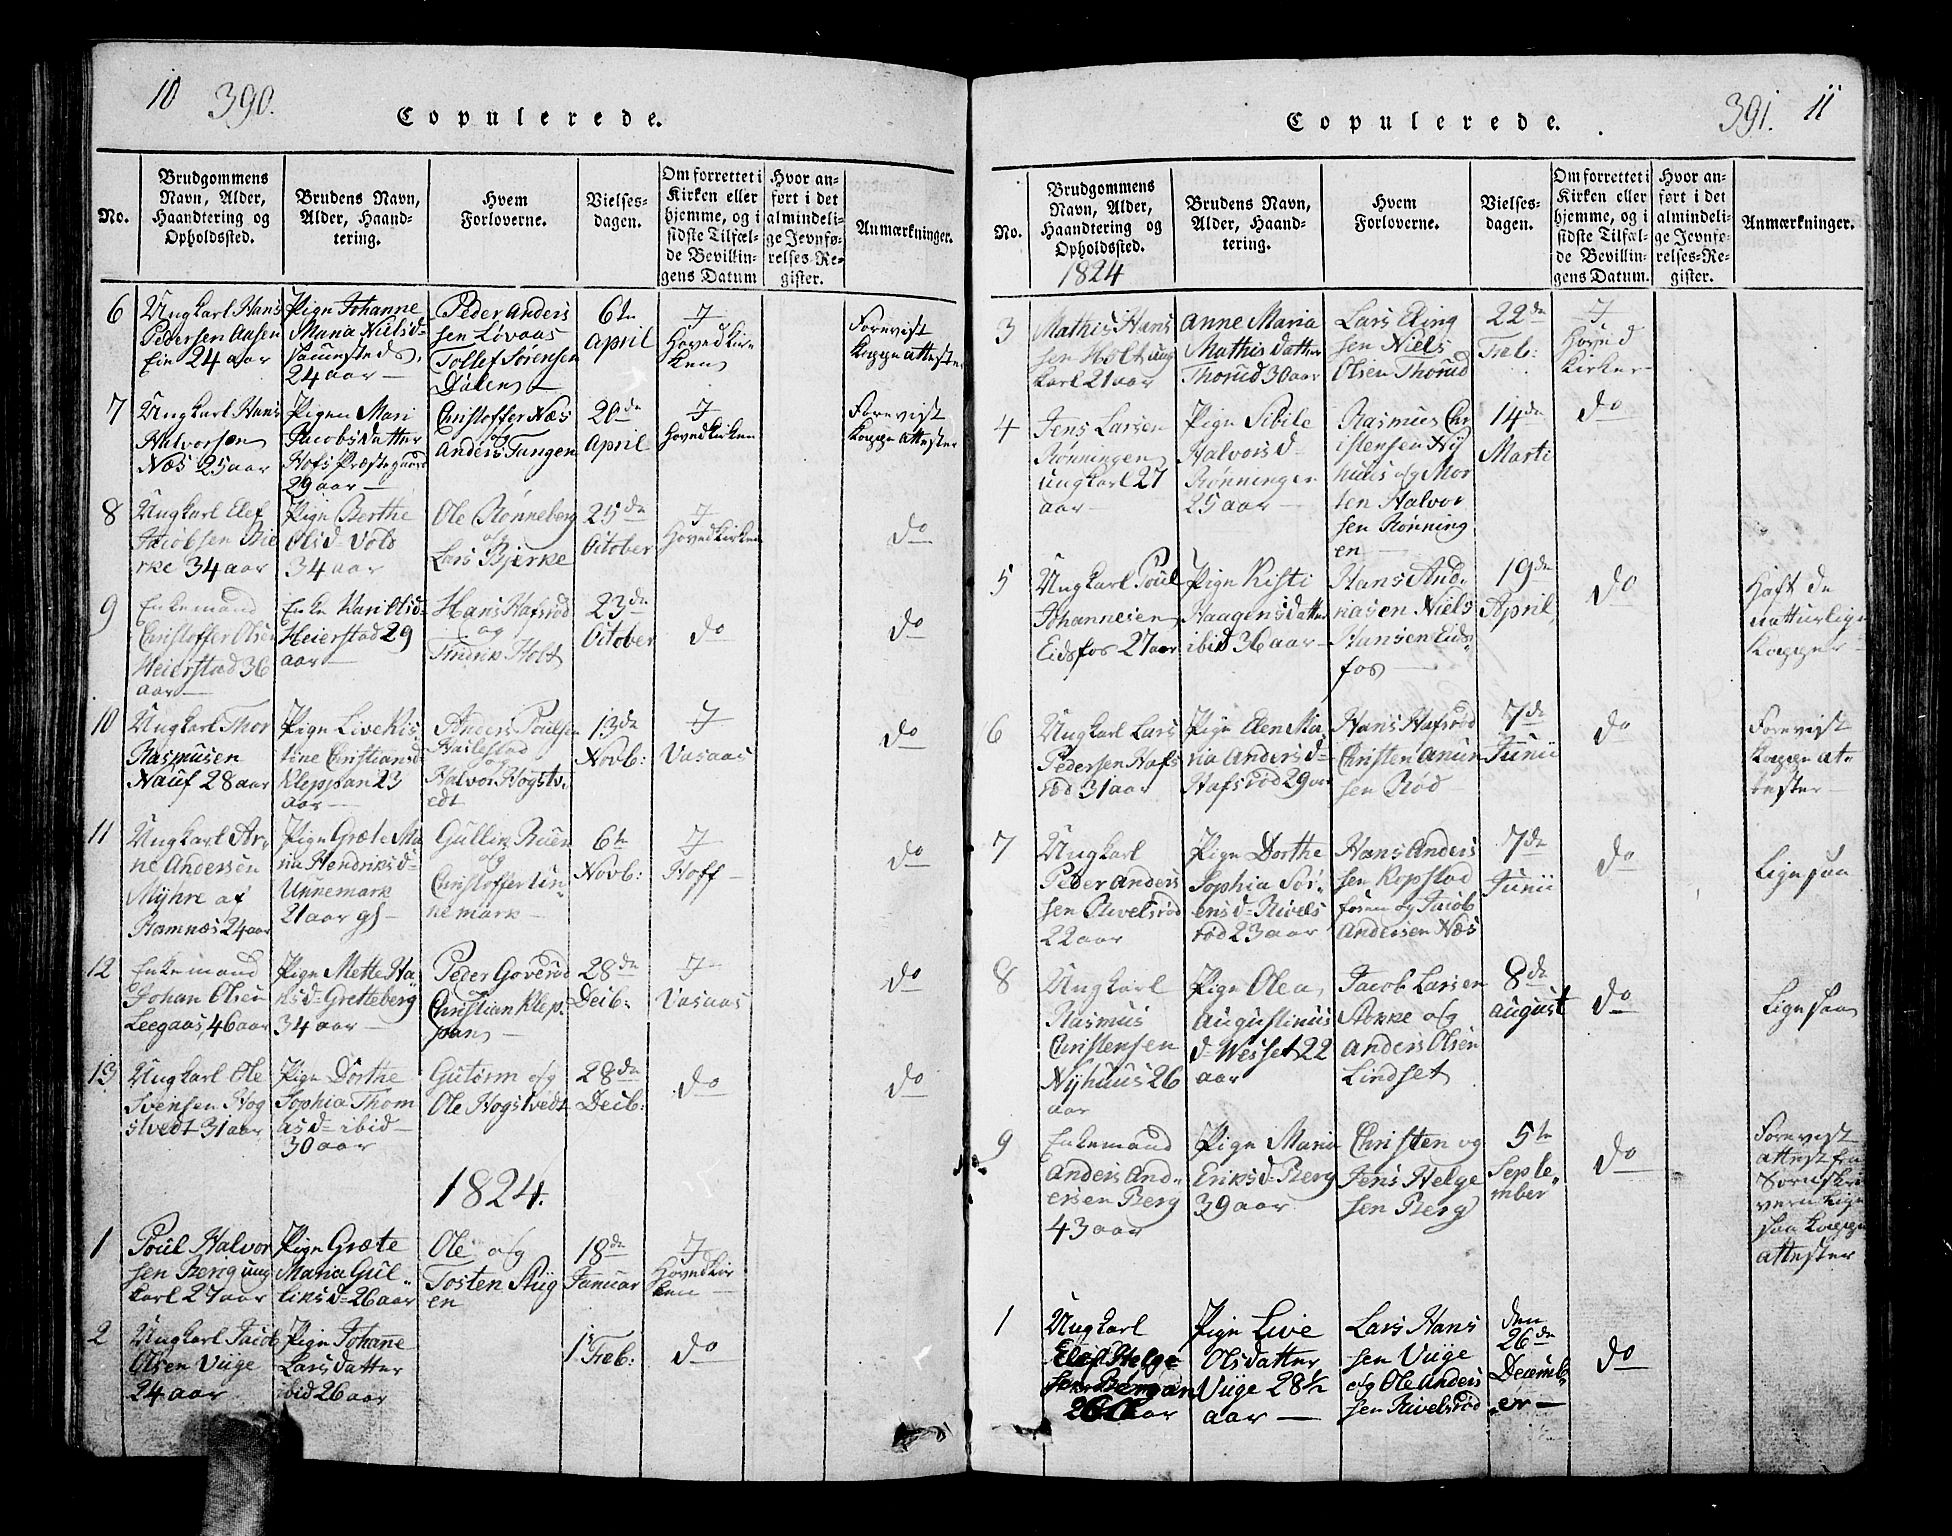 10 390.
Copulerede.
No.
Brudgommens
Navn, Alder,
Haandtering og
Opholdssted.
Brudens Navn,
Alder, Haand-
tering.
Hvem
Forloverne.
Vielses-
dagen.
Om forrettet i
Kirken eller
hjemme, og i
sidste Tilfæl-
de Bevillin-
gens Datum
Hvor an-
ført i det
almindeli-
ge Jevnfø-
relses-Re-
gister.
Anmærkninger.
6
Ungkarl Hans
Pedersen Aasen
Eie 24 aar
Pige Johanne
Maria Nielsd=
24 aar
Peder Anders
sen Løvaas
Tollef Sørensen
Dalen
6te
April
J
Hovedkir
ken
Forevist
Koppe attester
7
Ungkarl Hans
Halvorsen
Næs 25 aar
Pigen Mari
Jacobsdatter
Hofs Præstegaard
29 aar
Christoffer Næs
og
Anders Tangen
20de
April
J
Hovedkirken
Forevist
Koppe attester
8
Ungkarl Elef
Jacobsen Bie
rke 34 aar
Pige Berthe
Olsd= Vold
34 aar
Ole Rønneberg
og
Lars Bjerke
25de
October
J
Hovedkirken
do
9
Enkemand
Christoffer Olsen
Heierstad 36
aar
Enke Kari Olsd=
Heierstad 29
aar
Hans Hafsrød
og
Fredrik Holt
23de
October
do
do
10
Ungkarl Thor
Rasmusen
Nauf 28 aar
Pige Live Kis
tine Christiansd
Kleppan 23
aar
Anders Poulsen
Hailestad
og
Halvor Hogstv.
edt
13de
Novb:
J
Vasaas
do
11
Ungkarl Ar.
ne Andersen
Myhre af
Ramnæs 24 aar
Pige Græte Ma
ria Hendriksd=
Unnemark
21 aar gl
Gullik Ruen
og
Christoffer Un
nemark
6te
Novb:
J
Hoff
do
12
Enkemand
Johan Olsen
Leegaas, 46 aar
Pige Mette Ha
nsd= Gretteberg
34 aar
Peder Goverød
og
Christian Klep.
pan
28de
Decb:
J
Vasaas
do
13
Ungkarl Ole
Svensen Hog
stvedt 31 aar
Pige Dorthe
Sophia Thom
asd= ibid
30 aar
Gutorm og
Ole Hogstvedt
28de
Decb:
do
do
1824.
1
Poul Halvor
sen Berig ung
karl 27 aar
Pige Græte
Maria Gul
liksd= 26 aar
Ole og
Tosten Stüg
en
18de
Januar
J
Hovedkir
ken
2
Ungkarl Jacob
Olsen Vüge
24 aar
Pige Johane
Larsdatter
ibid 26 aar
1ste Feb:
do
391. 11
Copulerede.
No.
Brudgommens
Navn, Alder,
Haandtering og
Opholdssted.
1824
Brudens Navn,
Alder, Haand-
tering.
Hvem
Forloverne.
Vielses-
dagen.
Om forrettet i
Kirken eller
hjemme, og i
sidste Tilfæl-
de Bevillin-
gens Datum.
Hvor an-
ført i det
almindeli-
ge Jevnfø-
relses-Re-
gister.
Anmærkninger.
3
Mathis Hans
sen Holt ung
karl 21 aar
Anne Maria
Mathisdatter
Thorud 30 aar
Lars Eling
sen Niels
Olsen Thorud
22de
Feb:
J
Hoved
Kirken
4
Jens Larsen
Rønningen
ungkarl 27
aar
Pige Sibile
Halvorsd=
Rønningen
25 aar
Rasmus Chr
istensen Ny
huus og Mor
ten Halvor
sen Rønning
en
14de
Marti
do
5
Ungkarl Poul
Johannesen
Eidsfos 27 aar
Pige Kisti
Haagensdatter
ibid 36 aar
Hans And.
reasen Niels
Hansen Eids
fos
19de
April
do
Haft de
naturlige
Kopper
6
Ungkarl Lars
Pedersen Hafs
rød 31 aar
Pige Elen Ma
ria Andersd=
Hafsrød 29 aar
Hans Hafsrød
Christen Anun
sen Rød
7de
Junii
do
Forevist
Koppe at.
tester
7
Ungkarl
Peder Anders
sen Rivelsrød
22 aar
Pige Dorthe
Sophia Sør.
ensd= Rivels
rød 23 aar
Hans Anders
sen Kopstad
foren og Jacob
Andersen Næs
7de
Junii
do
Ligesaa
8
Ungkarl
Rasmus
Christensen
Nyhuus 26
aar
Pige Olea
Augustinus
d= Wesset 22
aar
Jacob Larsen
Stokke og
Anders Olsen
Lindset
8de
August
do
Ligesaa
9
Enkemand
Anders And
ersen Berg
43 aar
Pige Maria
Eriksd= Berg
39 aar
Christen og
Jens Helge
sen Berg
5te
Septe
mber
do
Forevist
attest fra
Sornskri
veren lige
saa Koppe
attester
1
Ungkarl
Elef Helge
sen Bergan
26 aar
Pige Live
Olsdatter
Vüge 28 1/2
aar
Lars Hans
sen Vüge
og Ole Anders
sen Rivelsrød
den
26de
Decemb
er
do